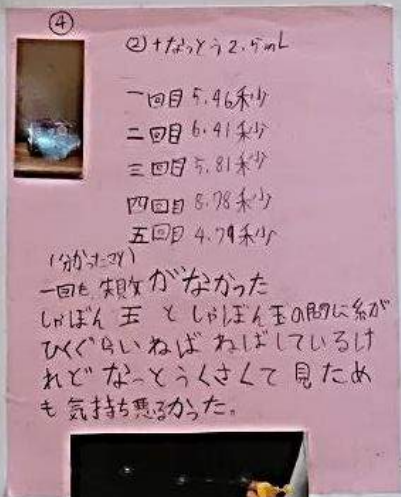 ④
②+なっとう2.5mL
一回目5.46秒
二回目6.41秒
三回目5.81秒
四回目8.78秒
五回目4.79秒
(分かったこと)
一回も失敗がなかった
しゃぼん玉としゃぼん玉の間に糸が
ひくぐらいねばねばしているけ
れどなっとうくさくて見ため
も気持ち悪るかった。